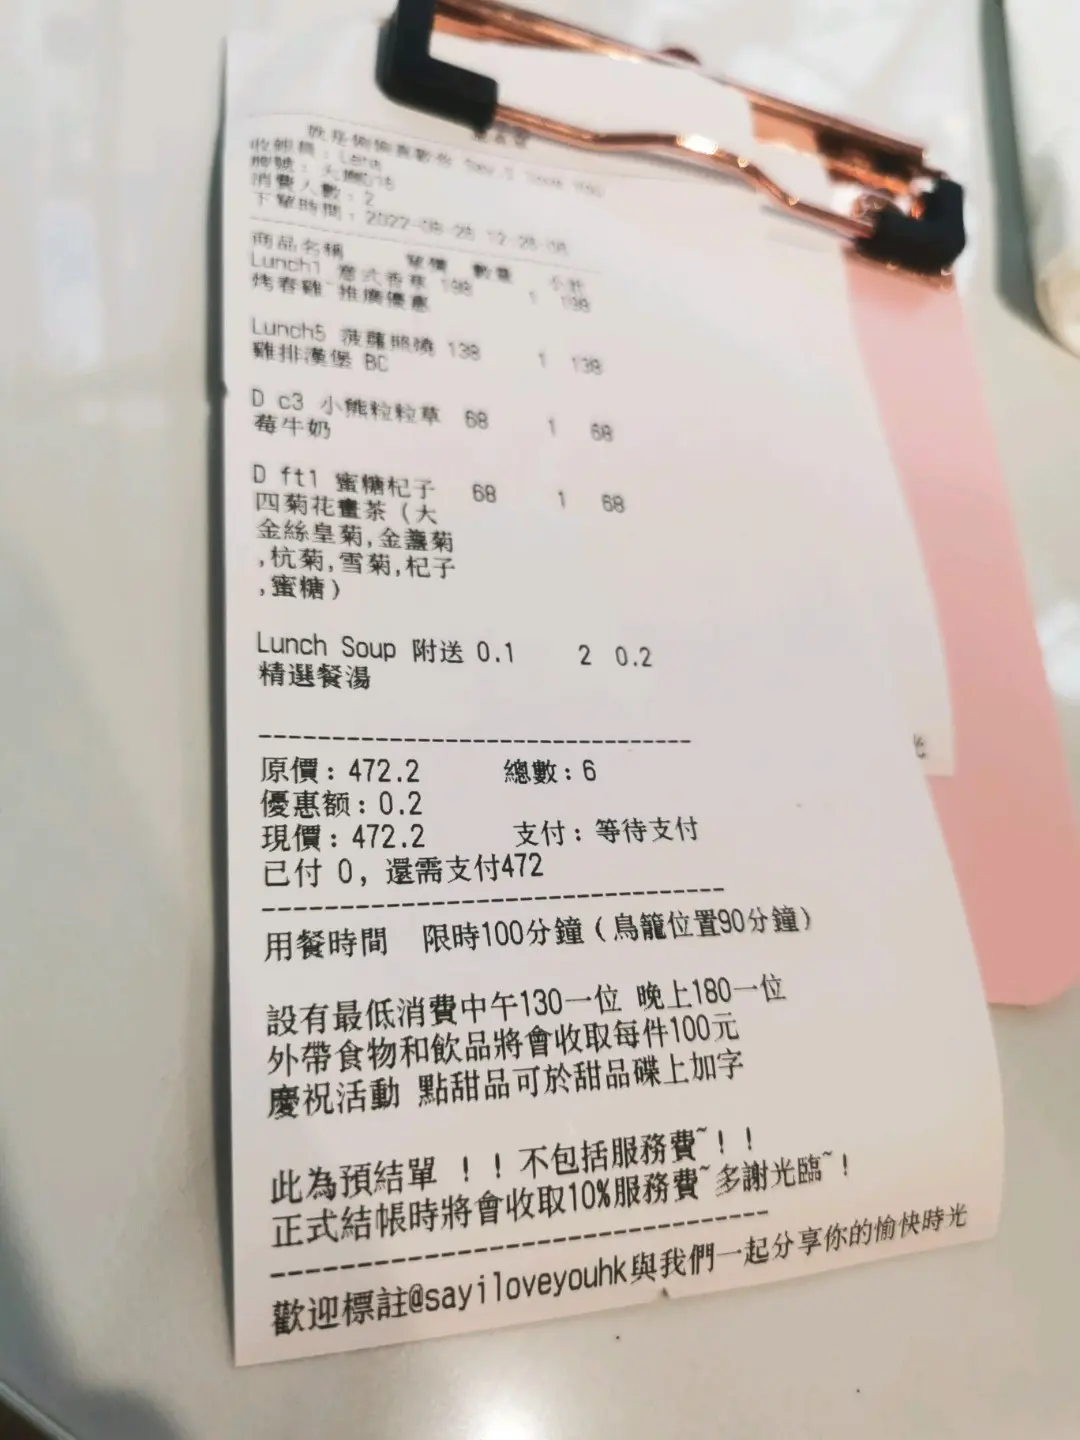 就是偷偷喜歡你 Say I love you
收銀員：Lena
牌號：
消費人數：2
下單時間：2022-08-28 12:28:08
商品名稱 單價 數量 小計
Lunch1 意式香草 198 1 198
烤春雞~推廣優惠
Lunch5 菠蘿照燒 138 1 138
雞排漢堡 BC
D c3 小熊粒粒草 68 1 68
莓牛奶
D ft1 蜜糖杞子 68 1 68
四菊花畫茶（大
金絲皇菊,金盞菊
,杭菊,雪菊,杞子
,蜜糖）
Lunch Soup 附送 0.1 2 0.2
精選餐湯
原價：472.2 總數：6
優惠额：0.2
現價：472.2 支付：等待支付
已付 0, 還需支付472
用餐時間 限時100分鐘（鳥籠位置90分鐘）
設有最低消費中午130一位 晚上180一位
外帶食物和飲品將會收取每件100元
慶祝活動 點甜品可於甜品碟上加字
此為預結單 ！！不包括服務費~！！
正式結帳時將會收取10%服務費~多謝光臨~！
歡迎標註@sayiloveyouhk與我們一起分享你的愉快時光